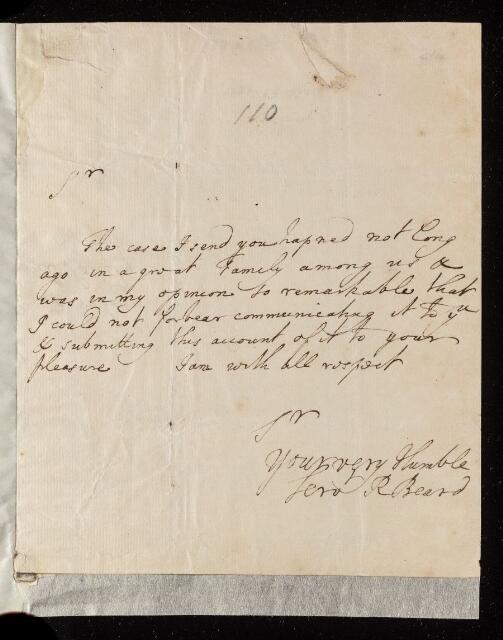 110
Sr
The case I send you hapned not long
ago in a great Family among us &
was in my opinion so remarkable that
I could not forbear communicating it to yu
& submitting this account of it to your
pleasure I am with all respect
Sr
Your very Humble
Serv R Beard